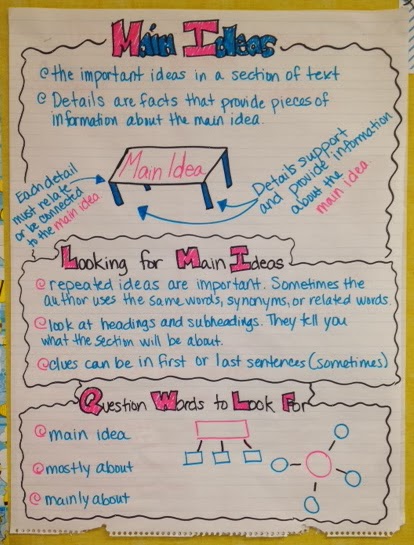 Main Ideas
the important ideas in a section of text
Details are facts that provide pieces of
information about the main idea.
Each detail
must relate
or be connected
to the main idea
Main Idea
Details support
and provide information
about the
main idea
Looking for Main Ideas
repeated ideas are important. Sometimes the
author uses the same words, synonyms, or related words.
look at headings and subheadings. They tell you
what the section will be about.
clues can be in first or last sentences (sometimes)
Question Words to Look For
main idea
mostly about
mainly about